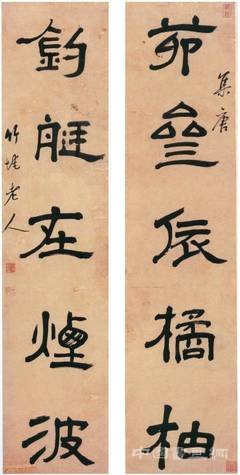 茆亝依橘柚
集唐
釣艇在煙波
竹垞老人